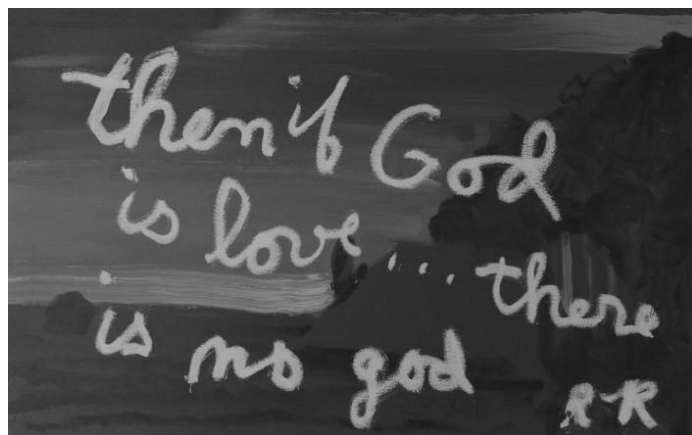 then if God
is love ... there
is no god
R-R